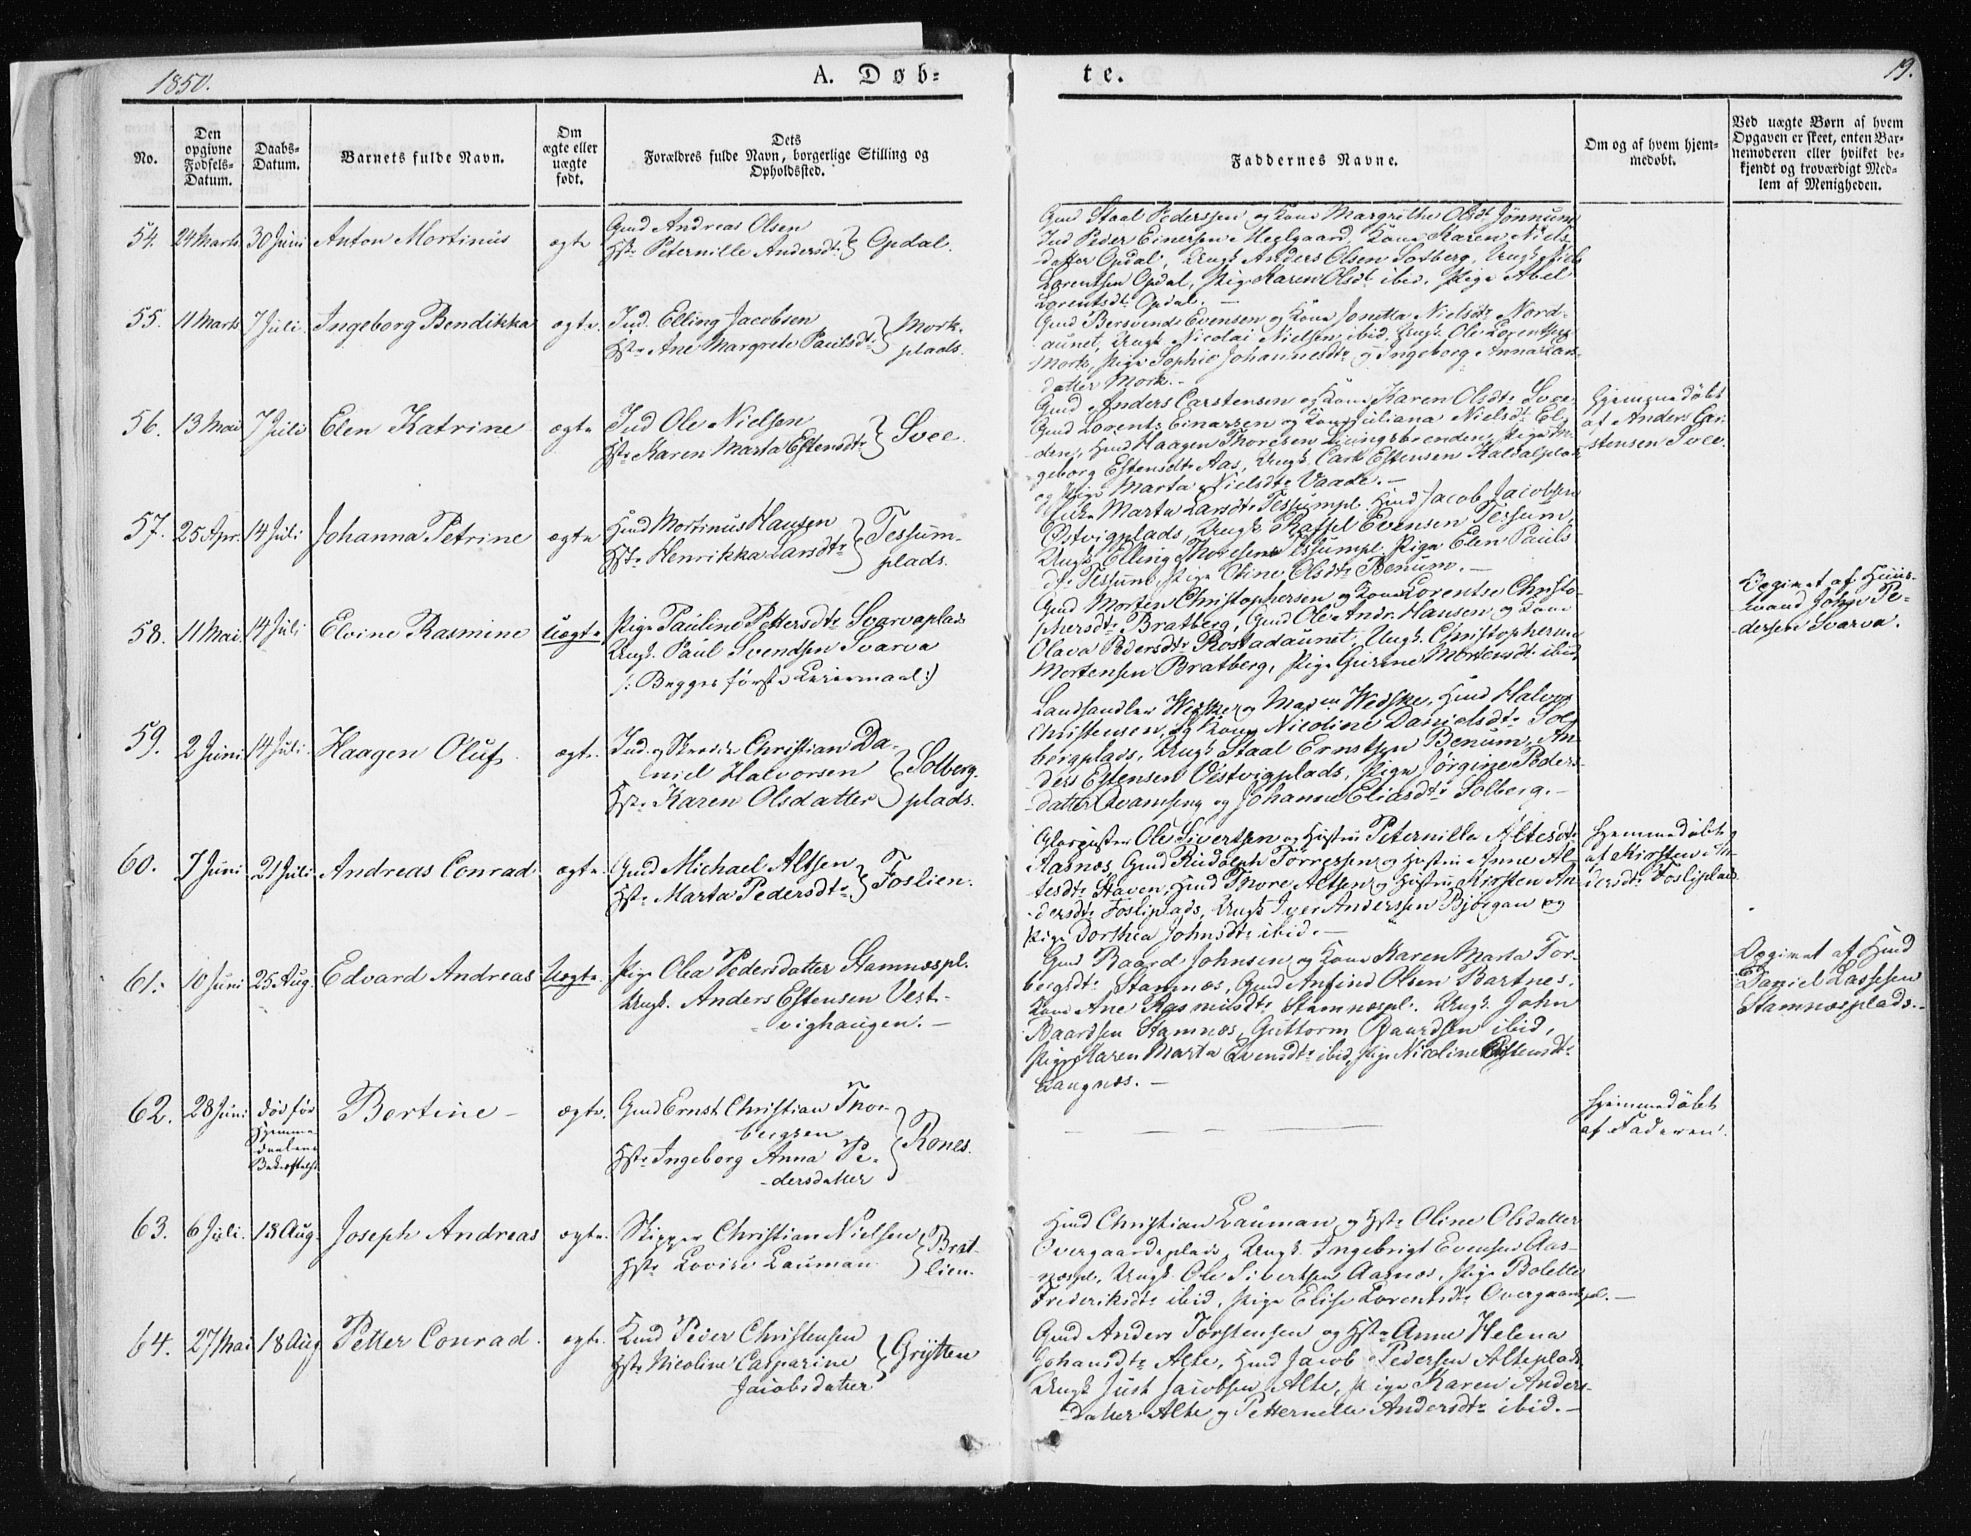 1850.
A. Døb-
te.
19.
No.
Den opgivne Fødsels-Datum.
Daabs-Datum.
Barnets fulde Navn.
Om ægte eller uægte født.
Dets Forældres fulde Navn, borgerlige Stilling og Opholdssted.
Faddernes Navne.
Om og af hvem hjem-medøbt.
Ved uægte Børn af hvem Opgaven er skeet, enten Bar-nemoderen eller hvilket be-kjendt og troværdigt Med-lem af Menigheden.
54. 24 Marts 30 Juni Anton Mortinus ægte
Gmd Andreas Olsen
Hst: Peternille Andersdt: Opdal.
Gmd Staal Pederssen og Kone Margrethe Olsdt: Jønnum
Ind Peder Einersen Meelgaard, Kone Karen Niels-
datter Opdal, Ungk Anders Olsen Solberg, Ungk
Lorentsen Opdal, Pige Karen Olsdt: ibid, Pige Abel
Lorentsdt: Opdal. —
55. 11 Marts 7 Juli. Ingeborg Bendikka ægte.
Ind. Elling Jacobsen
Hst: Ane Margrete Paulsdt: Mork-
plads.
Gmd Bersvend Evensen og Kone Jonetta Nielsdt: Nord-
aunet, Ungk Nicolai Nielsen ibid, Ungk. Ole Lorentsen
Mork, Pige Sophie Johannesdt: og Ingeborg Anna Lars-
datter Mork. —
56. 13 Mai 7 Juli Elen Katrine ægte
Ind Ole Nielsen
Hst: Karen Marta Estensdt: Svee.
Gmd Anders Carstensen og Kone Karen Olsdt: Svee,
Gmd Lorents Einarsen og Kone Juliana Nielsdt: El-
den, Hmd Haagen Thoresen Lingsbrenden, Pige In-
geborg Estensdt: Aas, Ungk. Carl Estensen Kaldalplad,
og Pige Marta Nielsdt: Vaade. —
Hjemmedøbt
af Anders Car-
stensen Svee.
57. 25 Apr. 14 Juli Johanna Petrine ægte
Hmd Mortinus Hansen
Hst: Henrikka Larsdt: Tessum-
plads.
Marta Larsdt: Tessumpl. Hmd Jacob Jacobsen
Østvigplads, Ungk. Raffel Evensen Tessum,
Ungk Elling Thoresen Tessumpl. Pige Elen Pauls
dt: Tessum, Pige Oline Olsdt: Benum. —
58. 11 Mai 14 Juli Elvine Rasmine Uægte
Pige Pauline Pettersdt: Svarvaplads
Ungk. Paul Svendsen Svarva
/: Begges første Leiermaal :/
Gmd Morten Christophersen og Kone Lorentse Christo-
phersdt: Bratberg, Gmd Ole Andr. Hansen og Kone
Olava Pedersdt: Rostadaunet, Ungk. Christopher
Mortensen Bratberg, Pige Gurine Mortensdt: ibid
Opgivet af Huus-
mand John Pe-
dersen Svarva.
59. 2 Juni 14 Juli. Haagen Oluf. ægte.
Ind. og Skredder Christian Da-
niel Halvorsen
Hst: Karen Olsdatter Solberg-
plads.
Landhandler Wedske og Mad m Wedske, Hmd Halvor
Christensen og Kone Nicoline Danielsdt: Sol-
bergplads, Ungk Staal Ernstsen Benum, An-
ders Estensen Vestvigplads, Pige Jørgine Peders-
datter Qvamseng og Johanna Eliasdt: Solberg. —
60. 7 Juni 21 Juli Andreas Conrad. ægte.
Gmd Michael Altsen
Hst: Marta Pedersdt: Foslien.
Ole Sivertsen og Hustru Peternille Altesdt:
Aasnæs, Gmd Rudolph Torressen og Hustru Anne Al-
tesdt: Staven, Hmd Thore Altsen og Hustru Kirsten An-
dersdt: Fosliplads, Ungk Iver Anderssen Bjørgan og
Pige Dorthea Johnsdt: ibid. —
Hjemmedøbt
af Kirsten An-
dersdt: Fosliplad.
61. 10 Juni 25 Aug. Edvard Andreas Uægte.
Pige Olea Pedersdatter Stamnæspl.
Ungk. Anders Estensen Vest-
vighaugen. —
Gmd Baard Johnsen og Kone Karen Marta Tor-
bergsdt: Stamnæs, Gmd Amfind Olsen Bartnes,
Kone Ane Rasmusdt: Stamnæspl. Ungk. John
Baardsen Stamnæs, Guttorm Baardsen ibid,
Pige Karen Marta Evensdt: ibid, Pige Nicoline Estensdt:
Langnæs. —
Opgivet af Hmd
Daniel Lassesen
Stamnæsplads. —
62. 28 Juni død før
Hjemme
daabens
Bekræftelse
Bertine — ægte.
Gmd Ernst Christian Thor-
bergsen
Hst: Ingeborg Anna Pe-
dersdatter Rones.
Hjemmedøbt
af Faderen.
63. 6 Juli. 18 Aug. Joseph Andreas ægte.
Skipper Christian Nielsen
Hst: Lovise Lauman Brat-
lien.
Hmd Christian Lauman og Hst: Oline Olsdatter
Overgaardsplads, Ungk. Ingebrigt Evensen Aas-
næspl. Ungk. Ole Sivertsen Aasnæs, Pige Bolette
Frederiksdt: ibid, Pige Elise Lorentsdt: Overgaardspl. —
64. 27 Mai 18 Aug Petter Conrad. ægte.
Hmd Peder Christensen
Hst: Nicoline Casparine
Jacobsdatter Grytten
Gmd Anders Torstensen og Hst: Anne Helena
Johansdt: Alte, Hmd Jacob Pedersen Alteplads
Ungk Just Jacobsen Alte, Pige Karen Anders-
datter Alte og Petternelle Andersdt: ibid. —